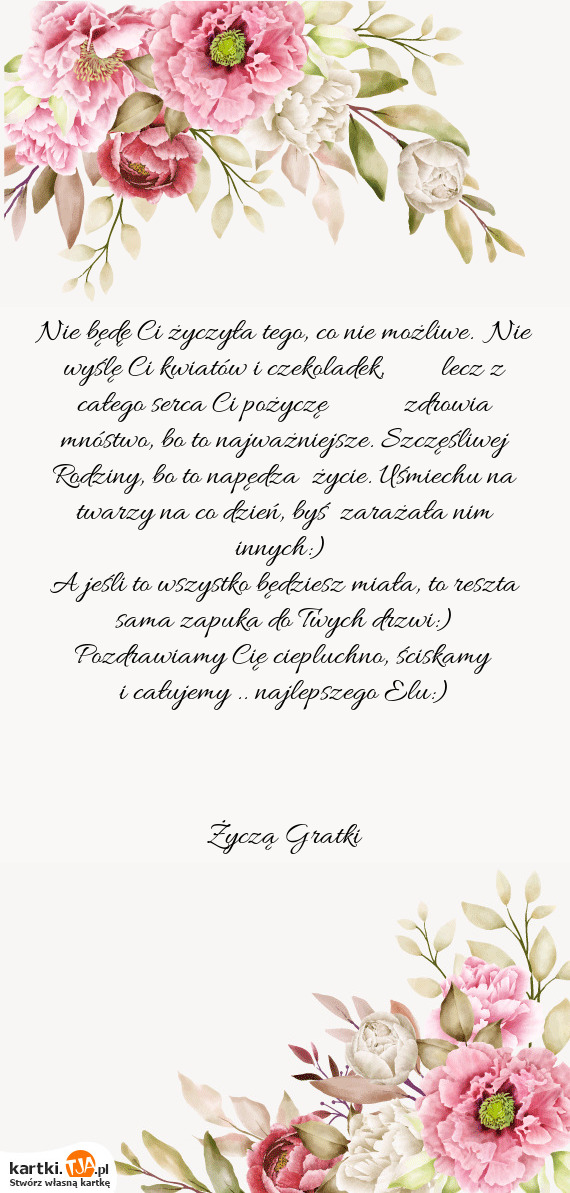 Nie będę Ci życzyła tego, co nie możliwe. Nie
wyślę Ci kwiatów i czekoladek, lecz z
całego serca Ci pożyczę zdrowia
mnóstwo, bo to najważniejsze. Szczęśliwej
Rodziny, bo to napędza życie. Uśmiechu na
twarzy na co dzień, byś zarażała nim
innych:)
A jeśli to wszystko będziesz miała, to reszta
sama zapuka do Twych drzwi:)
Pozdrawiamy Cię ciepluchno, ściskamy
i całujemy .. najlepszego Elu:)
Życzą Gratki
kartki.TJA.pl
Stwórz własną kartkę